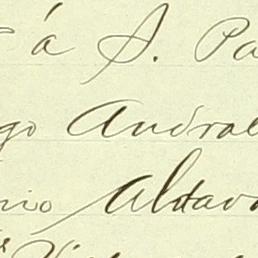 á S. Pa
go Andrad
nio Aldava